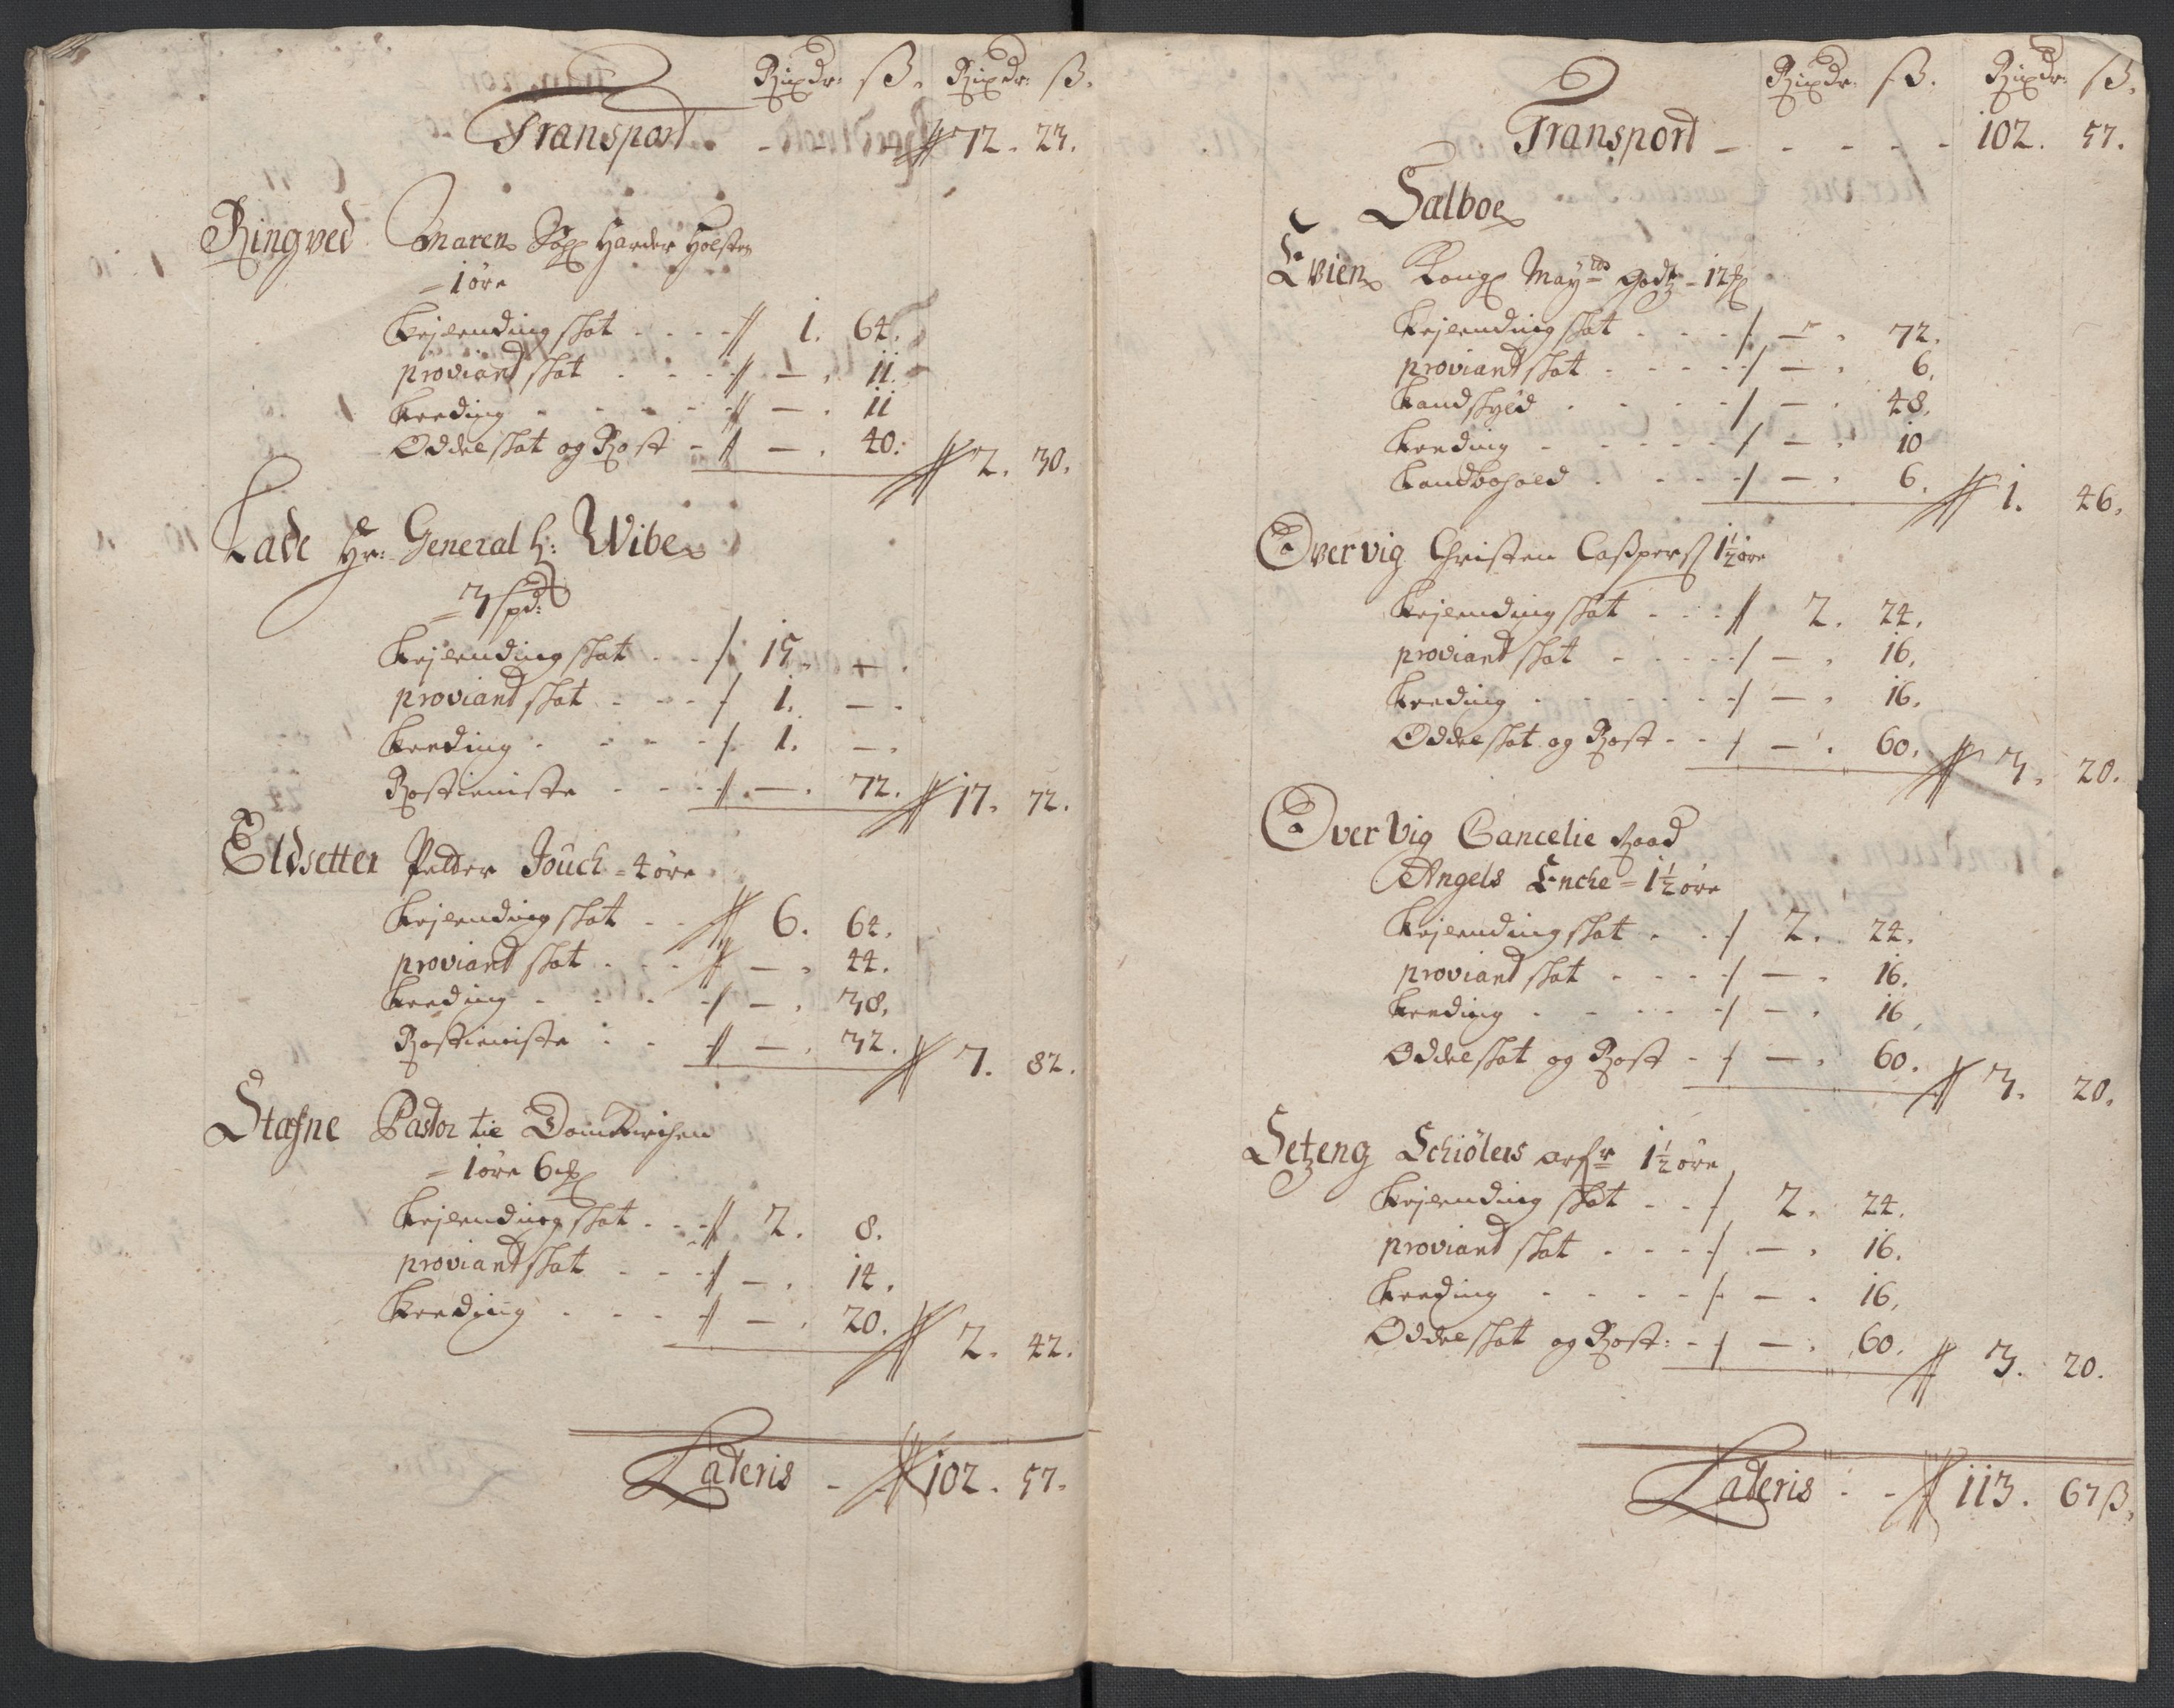 Rixdr: ß. Rixdr: ß.
Transport - - - 72. 23.
Ringved Maren Sal Harder Holsten
= 1 øre
Leilending skat - - - 1. 64.
proviant skat - - - — . 11.
Leeding - - - — . 11
Oddel skat og Rost - — . 40: 2. 30.
Lade Hr: General h: Wibe
= 3 spd:
Leilending skat - - 15. — .
proviant skat - - - 1. — .
Leeding - - - - 1. — .
Rostieniste - - - — . 72. 17. 72.
Eldsetter Petter Jouch = 4 øre
Leilending skat - - 6. 64.
proviant skat - - - — . 44.
Leeding - - - - — . 38.
Rostieniste - - — . 32. 7. 82.
Stafne Pastor til Domkirchen
= 1 øre 6
Leilending skat - - - 2. 8.
proviant skat - - - — . 14.
Leeding - - - - — . 20. 2. 42.
Lateris - 102. 57.
Rixdr: ß. Rixdr: ß.
Transport - - - - - 102. 57.
Salboe
Evien Kongl Maytts Godtz - 12
Leilending skat - - - — . 72.
proviant skat - - - - — . 6.
Landskyld - - - - — . 48.
Leeding - - - - - — . 10
Landbohold - - - - — . 6. 1. 46.
Overvig Christen Casperss 1½ øre
Leilending skat - - - 2. 24.
proviant skat - - - - — . 16.
Leeding - - - - - — . 16.
Oddelskat og Rost - - — . 60. 3. 20.
Over Vig Cancelie Raad
Angels Enche = 1½ øre
Leilending skat - - 2. 24.
proviant skat - - - - — . 16.
Leeding - - - - — . 16.
Oddelskat og Rost - — . 60. 3. 20.
Setzeng Schiølers arfr 1½ øre
Leilending skat - - 2. 24.
proviant skat - - - - — . 16.
Leeding - - - - — . 16.
Oddelskat og Rost: - — . 60. 3. 20.
Lateris - - 113. 67 ß.